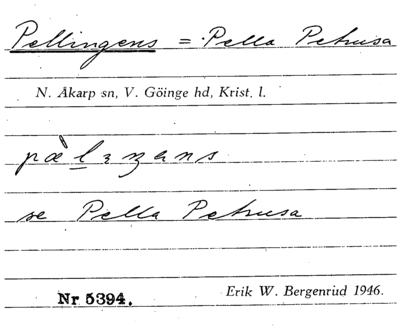 Pellingens = Pella Petrusa
N. Åkarp sn, V. Göinge hd, Krist. l.
se Pella Petrusa
Nr 5394.
Erik W. Bergenrud 1946.